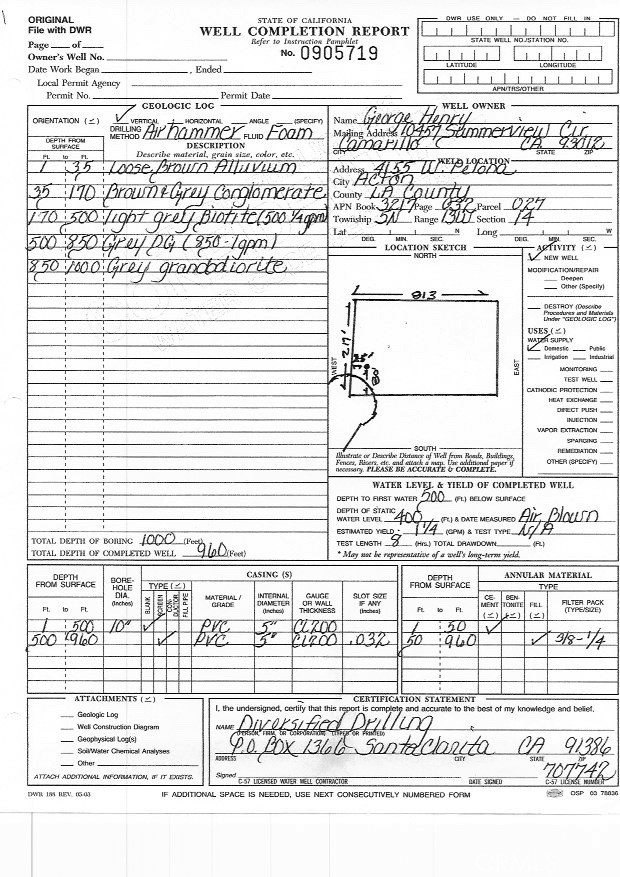 ORIGINAL
File with DWR
Page ___ of ___
Owner's Well No.
Date Work Began ___, Ended
Local Permit Agency
Permit No. ___ Permit Date
STATE OF CALIFORNIA
WELL COMPLETION REPORT
Refer to Instruction Pamphlet
No. 0905719
DWR USE ONLY — DO NOT FILL IN
STATE WELL NO./STATION NO.
LATITUDE LONGITUDE
APN/TRS/OTHER
GEOLOGIC LOG
ORIENTATION (✓) ✓ VERTICAL ___ HORIZONTAL ___ ANGLE ___ (SPECIFY)
DRILLING METHOD Air hammer FLUID Foam
DEPTH FROM SURFACE
Ft. to Ft.
DESCRIPTION
Describe material, grain size, color, etc.
1 35 Loose Brown Alluvium
35 170 Brown & Grey Conglomerate
170 500 light grey Biotite (500 1/4 gpm)
500 850 Grey DG (850-1gpm)
850 1000 Grey grandodiorite
TOTAL DEPTH OF BORING 1000 (Feet)
TOTAL DEPTH OF COMPLETED WELL 960 (Feet)
WELL OWNER
Name George Henry
Mailing Address 10457 Summerview Cir
Camarillo CA 93012
CITY STATE ZIP
WELL LOCATION
Address 4155 W. Pelona
City Acton
County LA County
APN Book 3217 Page 032 Parcel 027
Township 5N Range 13W Section 14
Lat N Long W
DEG. MIN. SEC. DEG. MIN. SEC.
LOCATION SKETCH
NORTH
813
217'
WEST
EAST
SOUTH
Illustrate or Describe Distance of Well from Roads, Buildings,
Fences, Rivers, etc. and attach a map. Use additional paper if
necessary. PLEASE BE ACCURATE & COMPLETE.
ACTIVITY (✓)
✓ NEW WELL
MODIFICATION/REPAIR
___ Deepen
___ Other (Specify)
___ DESTROY (Describe
Procedures and Materials
Under "GEOLOGIC LOG")
USES (✓)
WATER SUPPLY
✓ Domestic ___ Public
___ Irrigation ___ Industrial
MONITORING
TEST WELL
CATHODIC PROTECTION
HEAT EXCHANGE
DIRECT PUSH
INJECTION
VAPOR EXTRACTION
SPARGING
REMEDIATION
OTHER (SPECIFY)
WATER LEVEL & YIELD OF COMPLETED WELL
DEPTH TO FIRST WATER 500 (Ft.) BELOW SURFACE
DEPTH OF STATIC
WATER LEVEL 400 (Ft.) & DATE MEASURED Air Blown
ESTIMATED YIELD * 1 1/4 (GPM) & TEST TYPE N/A
TEST LENGTH 8 (Hrs.) TOTAL DRAWDOWN ___ (Ft.)
* May not be representative of a well's long-term yield.
DEPTH FROM SURFACE
Ft. to Ft.
BORE-HOLE DIA. (Inches)
CASING (S)
TYPE (✓)
BLANK SCREEN CON-DUCTOR FILL PIPE
MATERIAL / GRADE
INTERNAL DIAMETER (Inches)
GAUGE OR WALL THICKNESS
SLOT SIZE IF ANY (Inches)
1 500 10" ✓ PVC 5" CL200
500 960 ✓ PVC 5" CL200 .032
DEPTH FROM SURFACE
Ft. to Ft.
ANNULAR MATERIAL
TYPE
CE-MENT (✓) BEN-TONITE (✓) FILL (✓) FILTER PACK (TYPE/SIZE)
1 50 ✓
50 960 ✓ 3/8-1/4
ATTACHMENTS (✓)
___ Geologic Log
___ Well Construction Diagram
___ Geophysical Log(s)
___ Soil/Water Chemical Analyses
___ Other
ATTACH ADDITIONAL INFORMATION, IF IT EXISTS.
CERTIFICATION STATEMENT
I, the undersigned, certify that this report is complete and accurate to the best of my knowledge and belief.
NAME Diversified Drilling
(PERSON, FIRM, OR CORPORATION) (TYPED OR PRINTED)
P.O. Box 1366 Santa Clarita CA 91386
ADDRESS CITY STATE ZIP
707742
Signed
C-57 LICENSED WATER WELL CONTRACTOR DATE SIGNED C-57 LICENSE NUMBER
DWR 188 REV. 05-03
IF ADDITIONAL SPACE IS NEEDED, USE NEXT CONSECUTIVELY NUMBERED FORM
OSP 03 78836